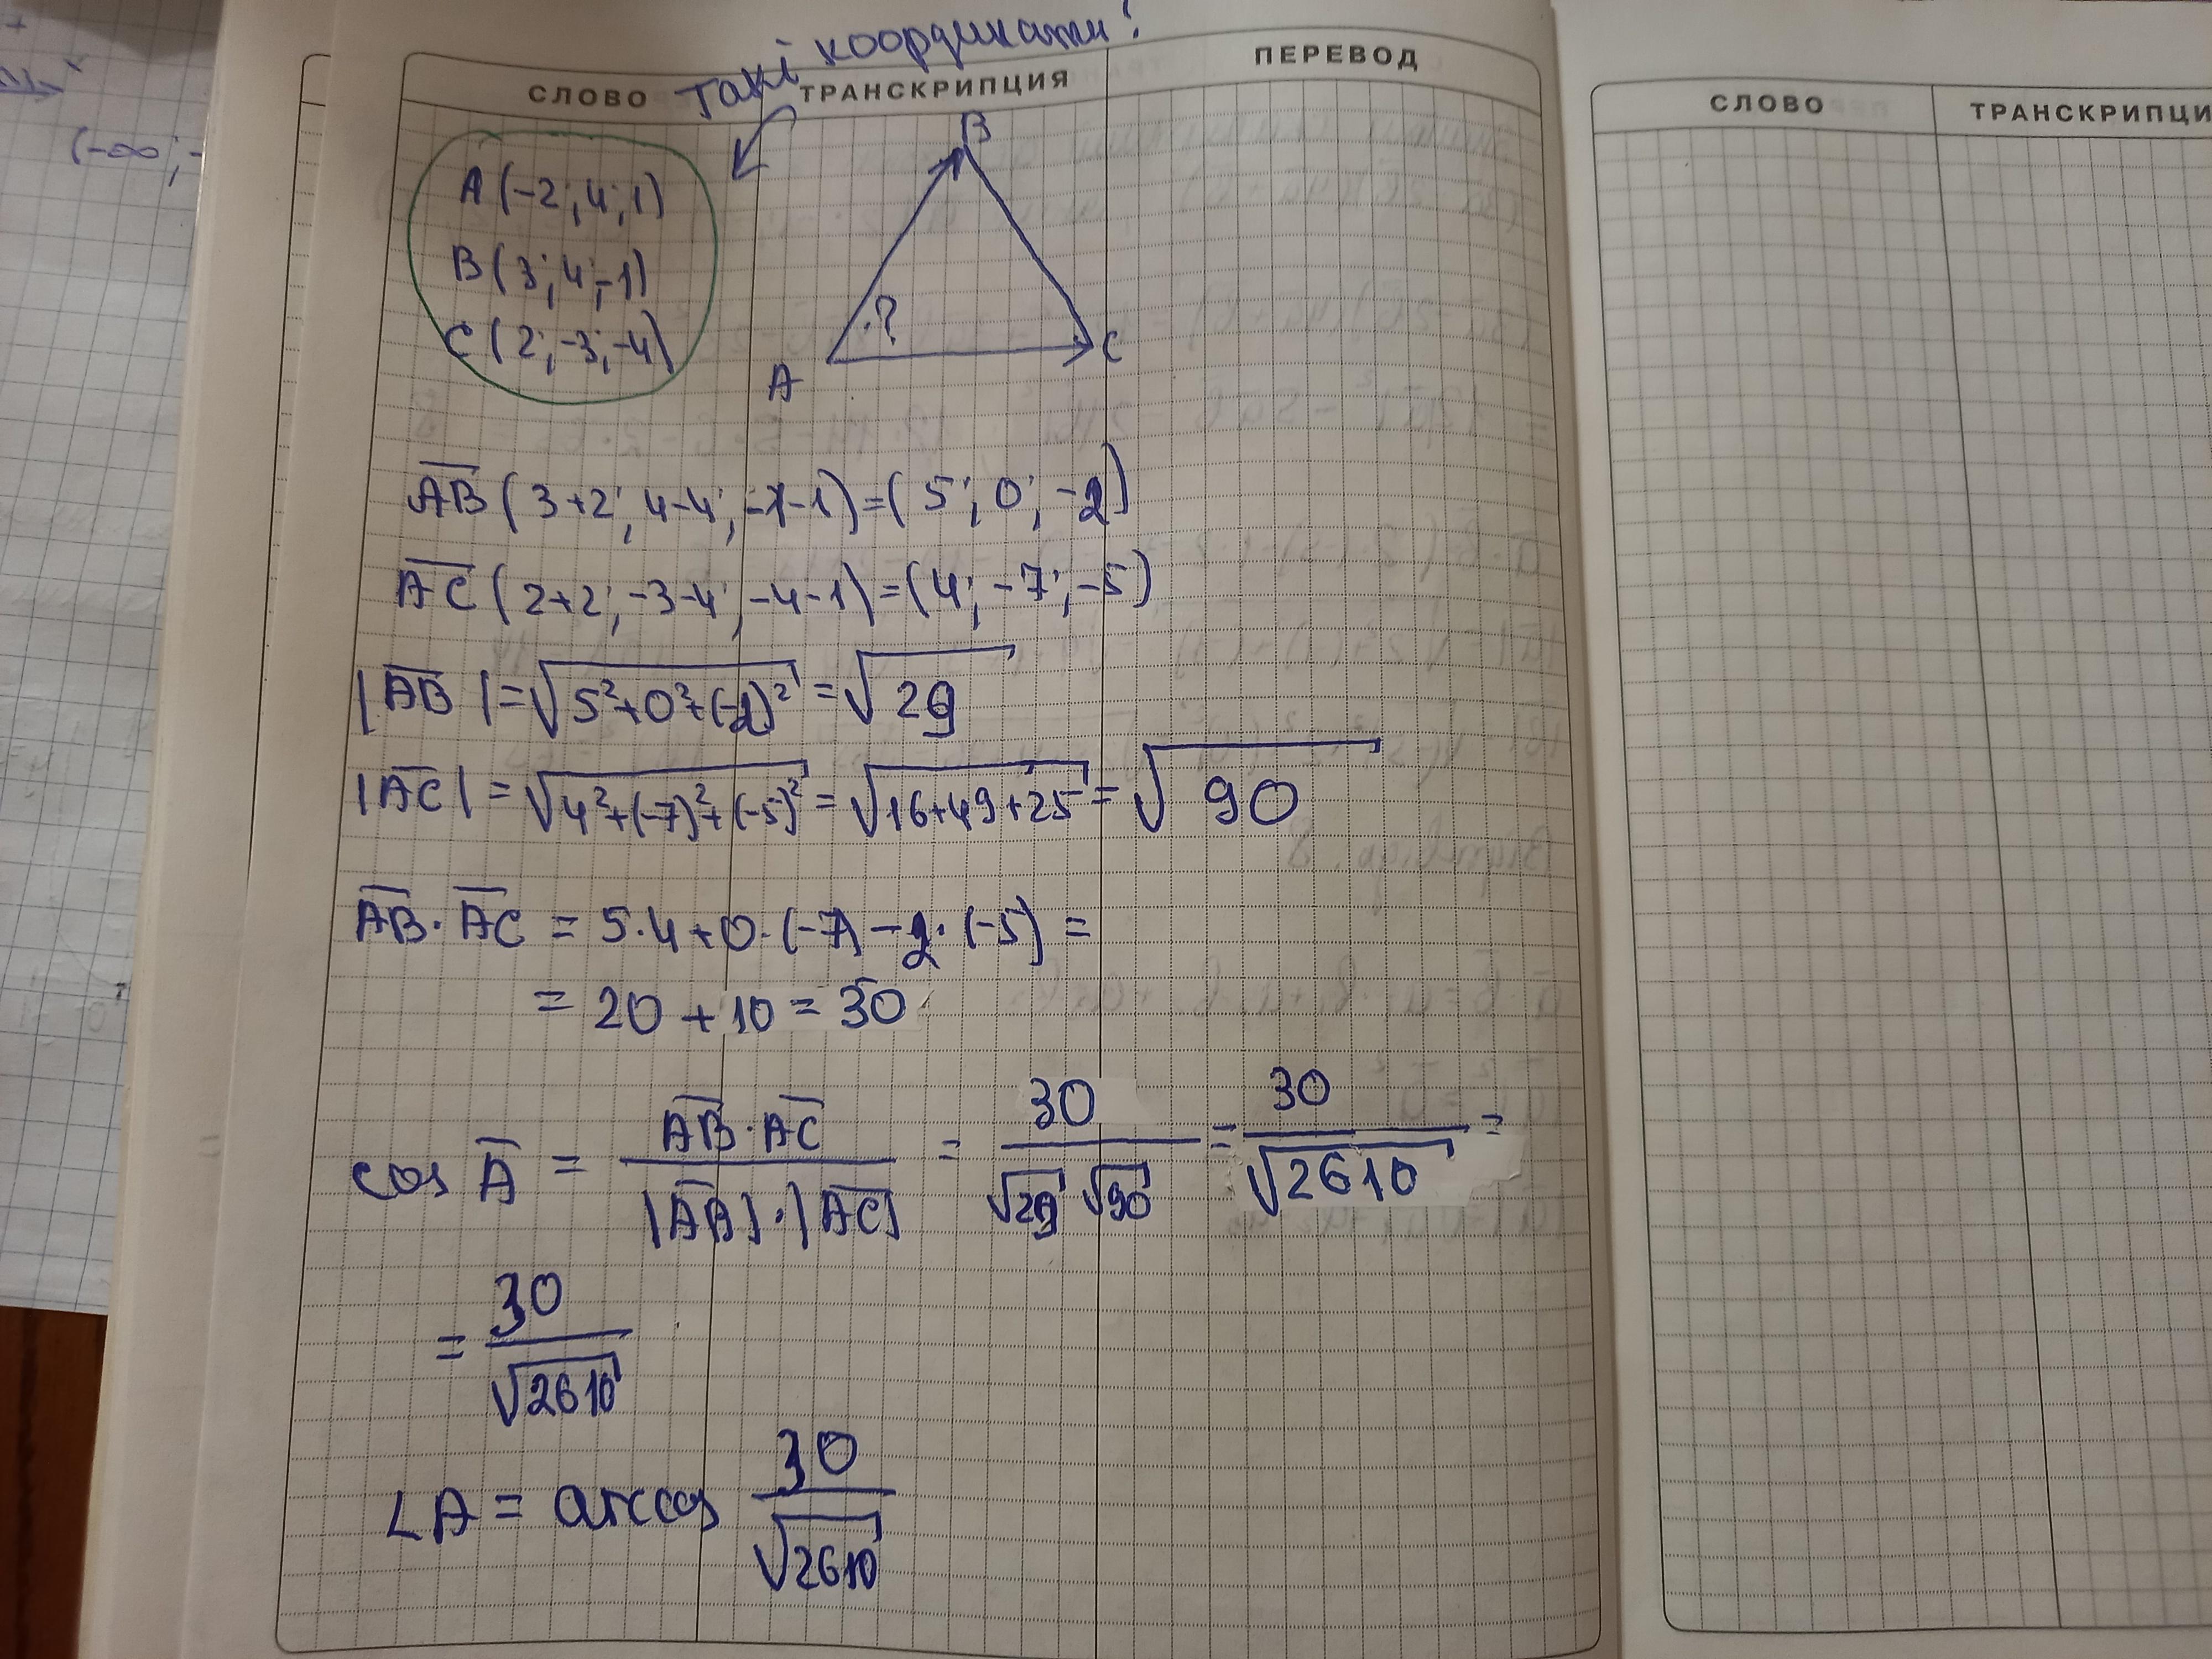 такі координати?
СЛОВО ТРАНСКРИПЦИЯ ПЕРЕВОД
A (-2; 4; 1)
B (3; 4; -1)
C (2; -3; -4)
B
?
A
C
AB (3+2; 4-4; -1-1) = (5; 0; -2)
AC (2+2; -3-4; -4-1) = (4; -7; -5)
|AB| = √5²+0²+(-2)² = √29
|AC| = √4²+(-7)²+(-5)² = √16+49+25 = √90
AB · AC = 5·4+0·(-7)-2·(-5) =
= 20 + 10 = 30
cos A = AB·AC / |AB|·|AC| = 30 / √29 √90 = 30 / √2610 =
= 30 / √2610
∠A = arccos 30 / √2610
(-∞; -
СЛОВО ТРАНСКРИПЦИ